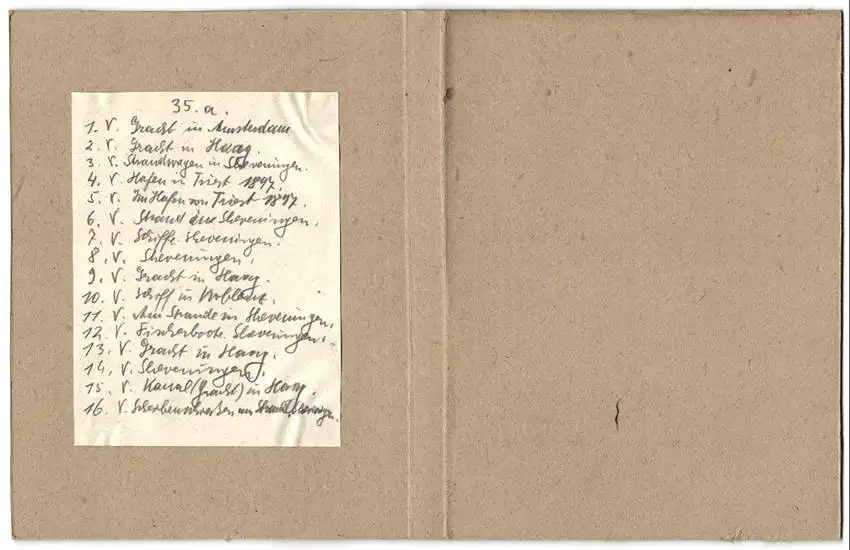 35.a.
1. V. Gracht in Amsterdam
2. V. Gracht in Haag.
3. V. Strandwagen in Scheveningen.
4. V. Hafen in Triest 1897.
5. V. Im Hafen von Triest 1897.
6. V. Strand in Scheveningen.
7. V. Schiffe. Scheveningen.
8. V. Scheveningen.
9. V. Gracht in Haag.
10. V. Schiff in Koblenz.
11. V. Am Strande in Scheveningen.
12. V. Fischerboote. Scheveningen.
13. V. Gracht in Haag.
14. V. Scheveningen.
15. V. Kanal (Gracht) in Haag.
16. V. Scheibenschießen am Strand